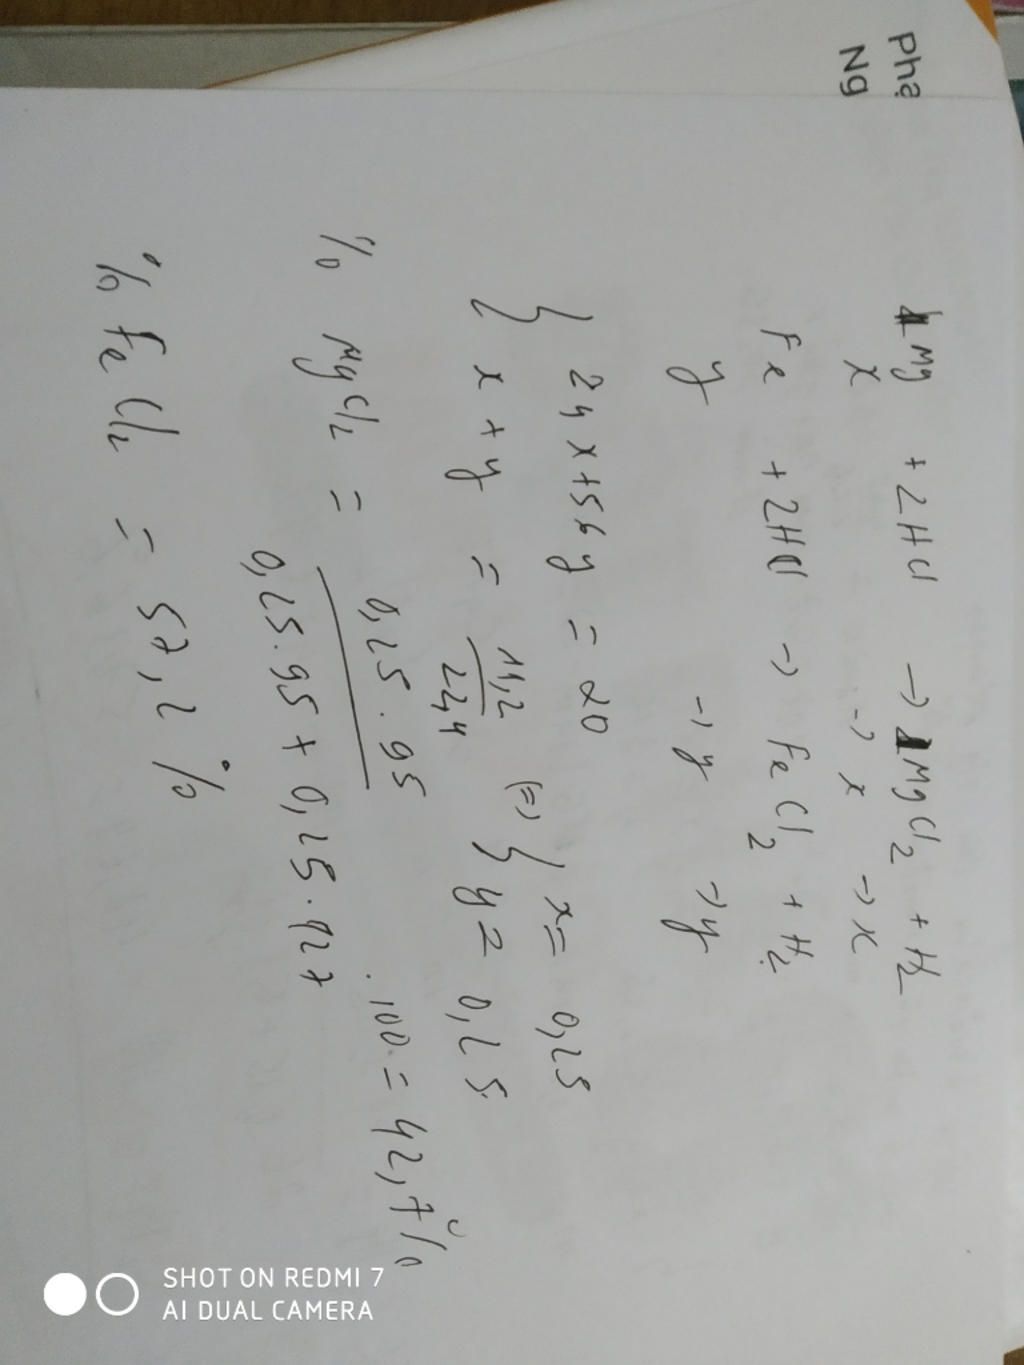 Phạ
Ng
Mg + 2HCl → MgCl2 + H2
x → x → x
Fe + 2HCl → FeCl2 + H2
y → y → y
{ 24x + 56y = 20
x + y = 11,2 / 22,4 (=) { x = 0,25
y = 0,25
% MgCl2 = 0,25 . 95 / 0,25 . 95 + 0,25 . 127 . 100 = 42,7%
% FeCl2 = 57,2%
SHOT ON REDMI 7
AI DUAL CAMERA